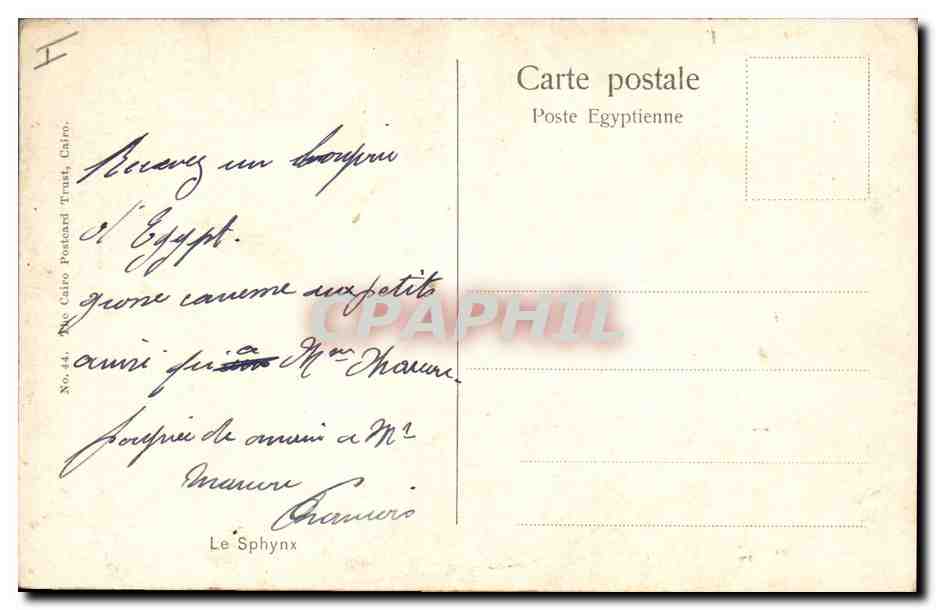 Carte postale
Poste Egyptienne
No. 44. The Cairo Postcard Trust, Cairo.
Recevez un
d'Egypt.
grosse caresse aux petits
ainsi qu'a Mme
poignée de main a Mr
CPAPHIL
Le Sphynx